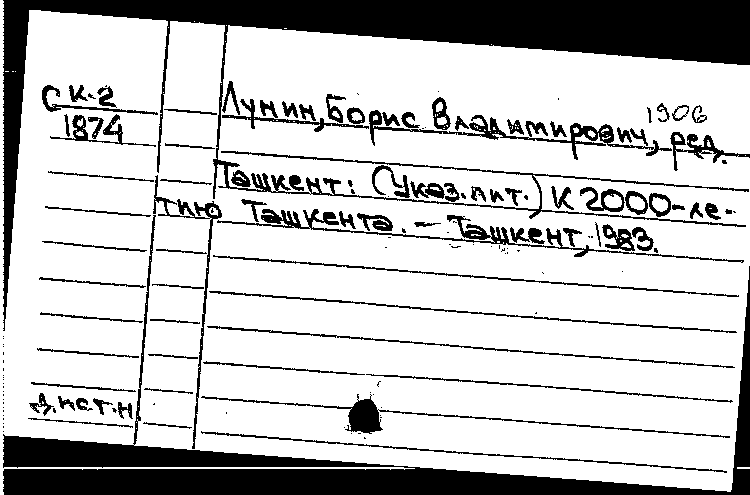 С К-2
1874
1906
Лунин, Борис Владимирович, ред.
Ташкент: (Указ. лит.) К 2000-ле-
тию Ташкента. – Ташкент, 1983.
д.ист.н.